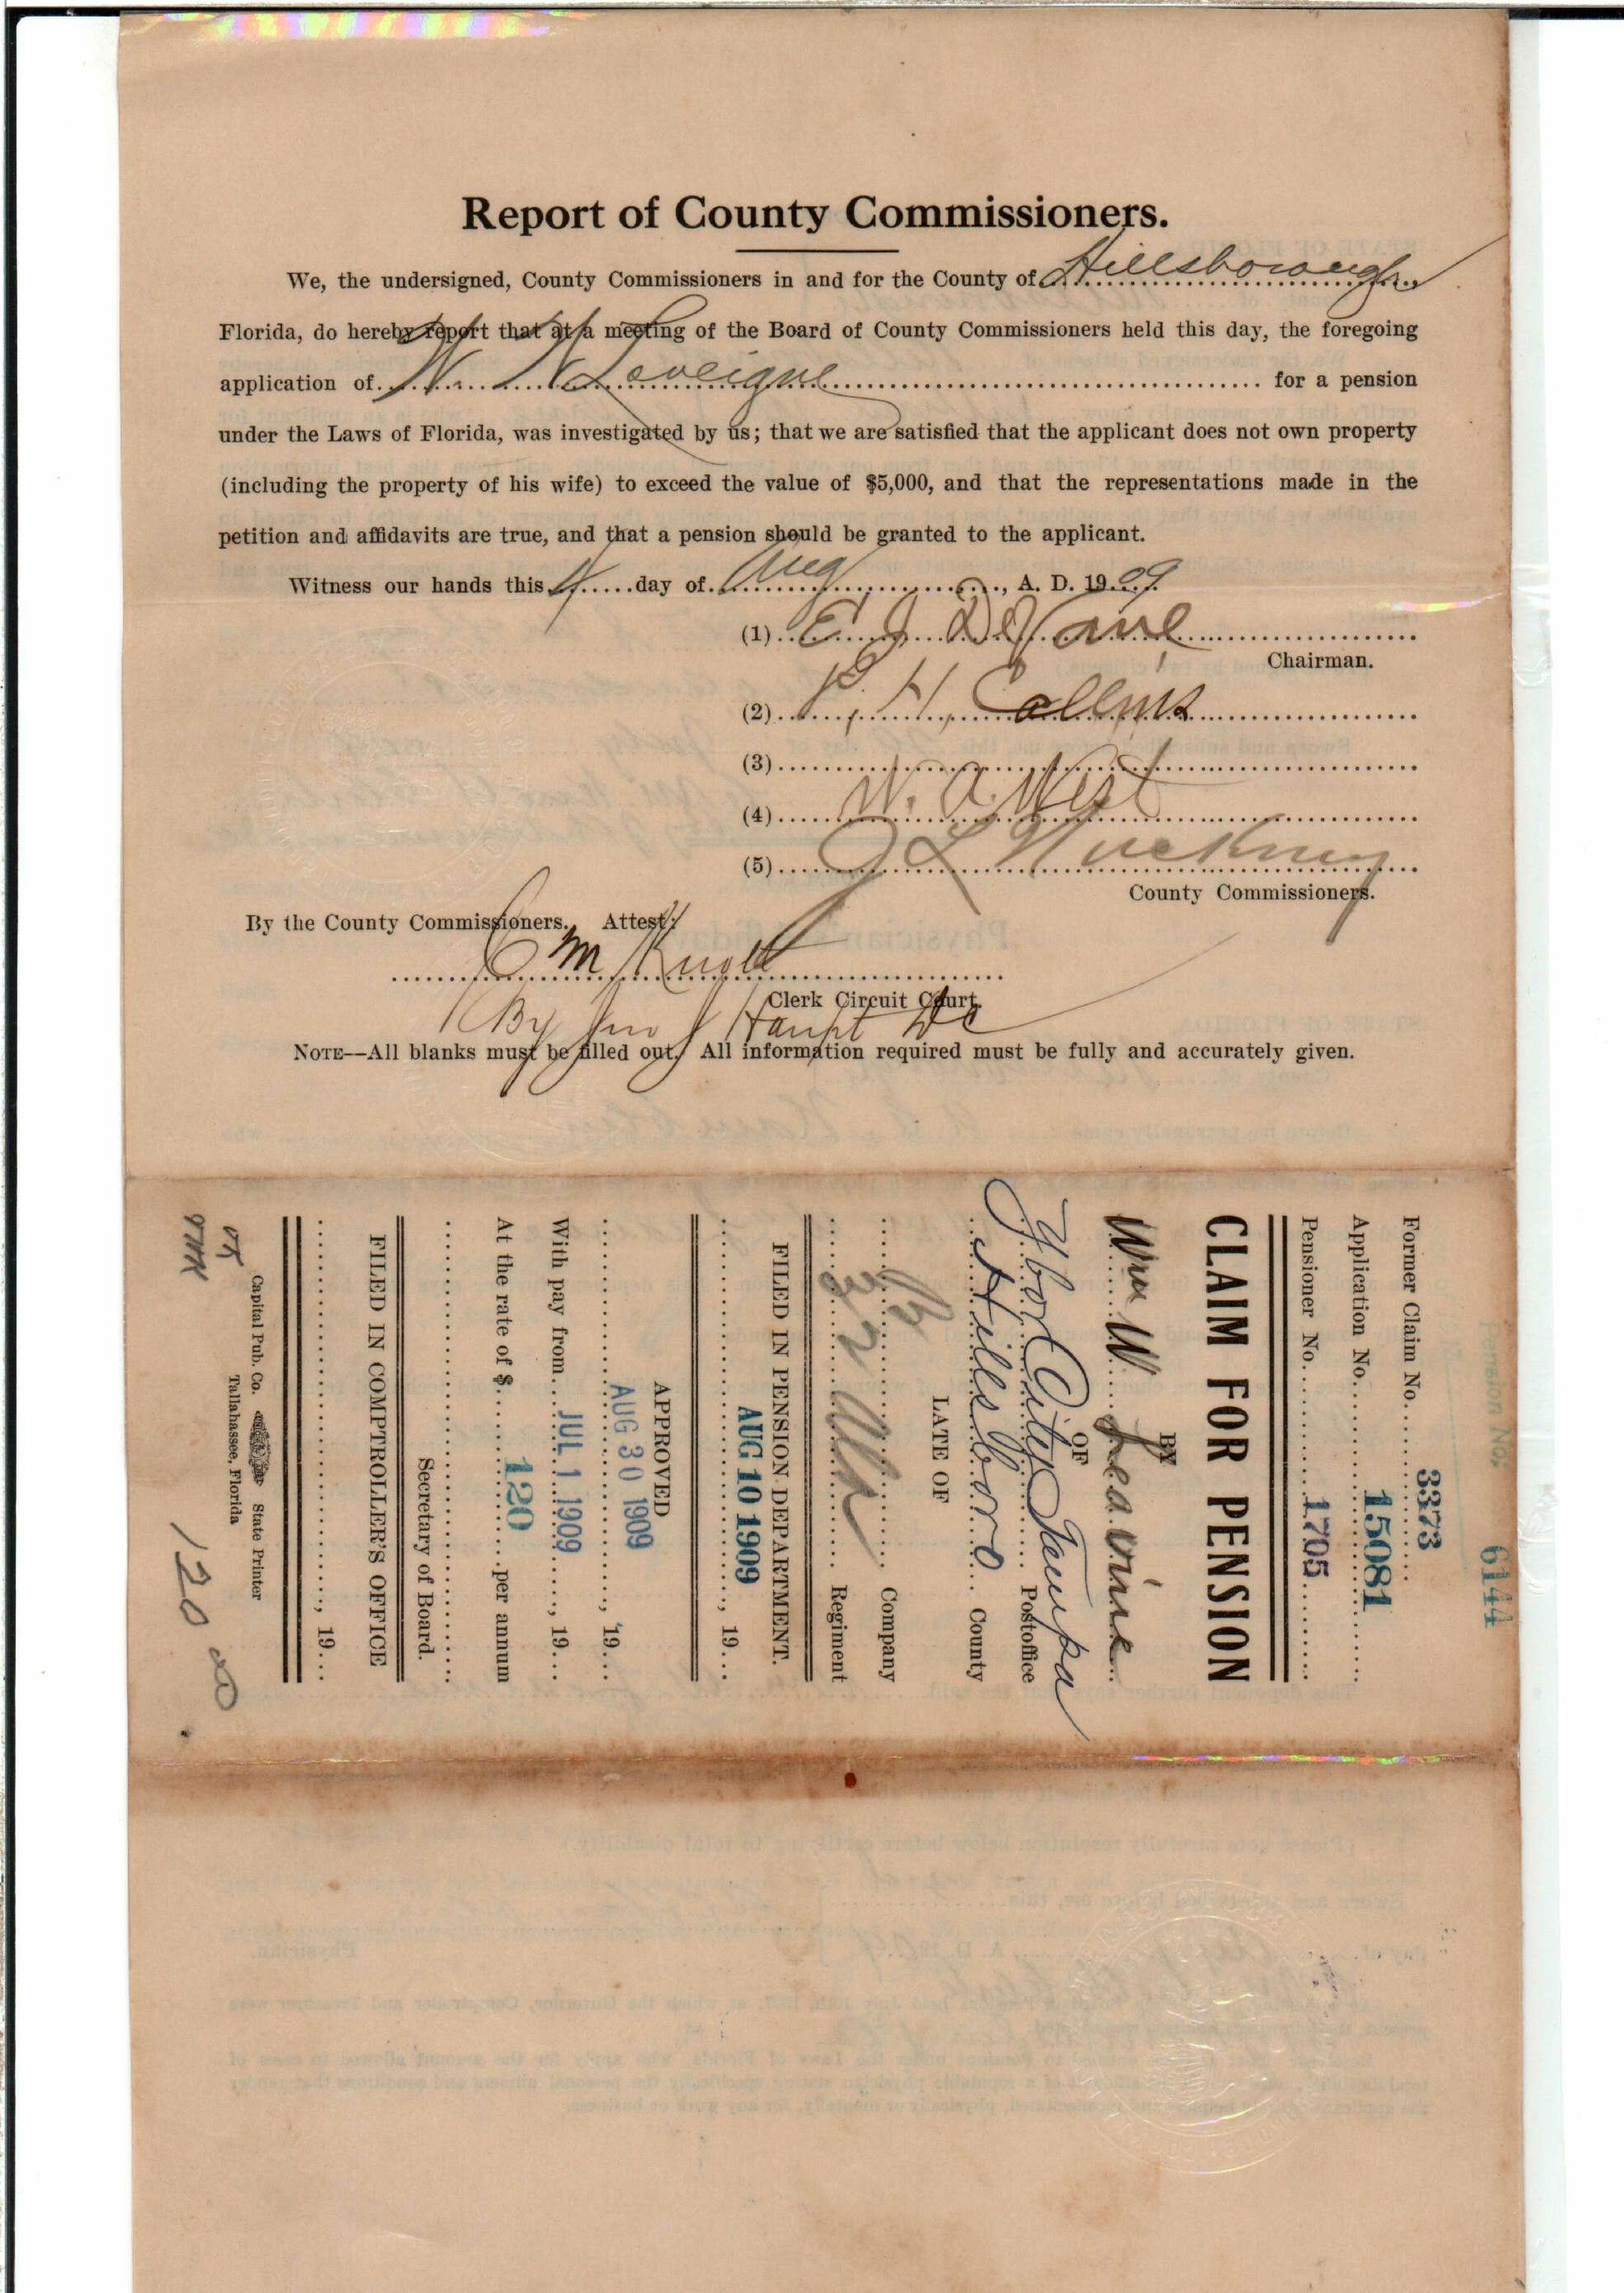 Report of County Commissioners.
We, the undersigned, County Commissioners in and for the County of Hillsborough
Florida, do hereby report that at a meeting of the Board of County Commissioners held this day, the foregoing
application of W. W. Laveigne for a pension
under the Laws of Florida, was investigated by us; that we are satisfied that the applicant does not own property
(including the property of his wife) to exceed the value of $5,000, and that the representations made in the
petition and affidavits are true, and that a pension should be granted to the applicant.
Witness our hands this 4 day of Aug, A. D. 1909
(1) E J DeVane
Chairman.
(2) P. H. Collins
(3)
(4) W. A. West
(5) J L Hackney
County Commissioners.
By the County Commissioners. Attest:
C M Knott
Clerk Circuit Court.
By Jno J Haupt DC
NOTE—All blanks must be filled out. All information required must be fully and accurately given.
Pension No. 6144
Former Claim No. 3373
Application No. 15081
Pensioner No. 1705
CLAIM FOR PENSION
BY
Wm W Leavine
OF
Ybor City Tampa Postoffice
Hillsboro County
LATE OF
Company
Ala Regiment
FILED IN PENSION DEPARTMENT.
AUG 10 1909, 19
APPROVED
AUG 30 1909, 19
With pay from JUL 1 1909, 19
At the rate of $ 120 per annum
Secretary of Board.
FILED IN COMPTROLLER'S OFFICE
, 19
Capital Pub. Co. State Printer
Tallahassee, Florida
OK
120 00